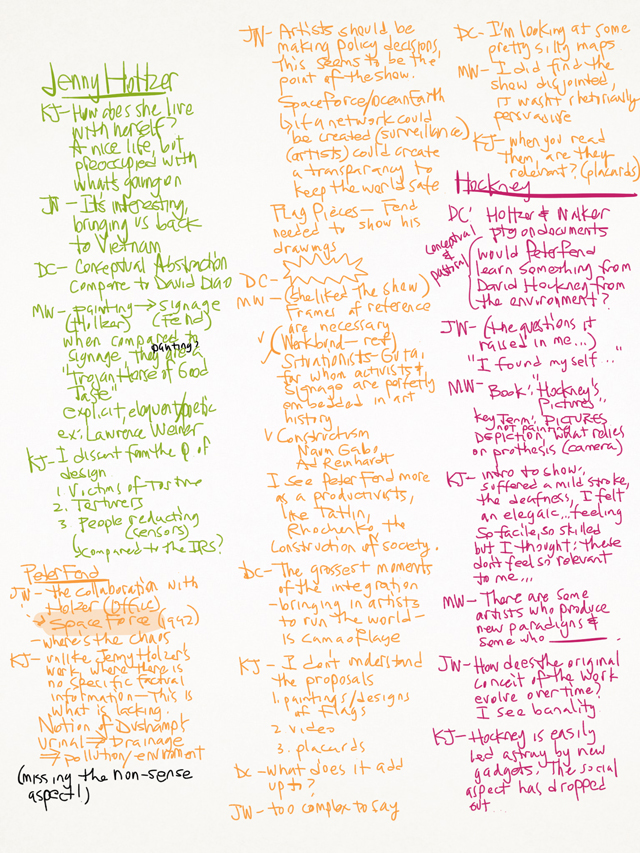 Jenny Holtzer
KJ- How does she live
with herself?
A nice life, but
preoccupied with
what's going on
JW - It's interesting,
bringing us back
to Vietnam
DC- Conceptual Abstraction
Compare to David Diao
MW- painting → signage
(Holzer) (Fend)
when compared to painting?
signage, they are a
"Trojan Horse of Good
Taste"
explicit, eloquent/poetic
ex: Lawrence Weiner
KJ- I discent from the P of
design
1. Victims of Torture
2. Torturers
3 People reducting
(sensors)
(compared to the IRS?
Peter Fend
JW- the collaboration with
Holzer (Offices)
Space Force (1992)
- where's the chaos
KJ- unlike Jenny Holzer's
work, where there is
no specific factual
information - This is
what is lacking.
Notion of Dushamp's
Urinal ⇒ Drainage
⇒ pollution/environment
(missing the non-sense
aspect!)
JW- Artists should be
making policy decisions,
this seems to be the
point of the show.
Space Force/ocean Earth
↳ if a network could
be created (surveillance)
(artists) could create
a transparancy to
keep the world safe
Flag Pieces - Fend
needed to show his
drawings
DC-
MW- (she liked the show)
Frames of reference
are necessary
√ (Workbund - ref)
Situationists - Gutai,
for whom activists &
signage are perfectly
embedded in art
history
√ Constructism
Naum Gabo
Ad Reinhardt
I see Peter Fend more
as a productivists,
like Tatlin,
Rhochenko, the
construction of society.
DC- The grossest moments
of the integration
- bringing in artists
to run the world -
is camaoflaye
KJ - I don't understand
the proposals
1. paintings/designs
of flags
2 video
3. placards
DC - what does it add
up to?
JW - too complex to say
DC- I'm looking at some
pretty silly maps
MW - I did find the
show disjointed,
it wasn't rhetorically
persuasive
KJ - when you read
them, are they
relevant? (placards)
Hockney
DC: Holtzer & Walker
ptg on documents
conceptual & pastoral
would Peter Fend
learn something from
David Hockney from
the environment?
JW- (the questions it
raised in me...)
"I found myself .."
MW- Book: "Hockney's
Pictures",
key Term: PICTURES
not painting
DEPICTION, what relies
or prothesis (camera)
KJ - intro to show,
suffered a mild stroke,
the deafness, I felt
an elegaic... feeling
So facile, so skilled
but I thought: these
don't feel so relevant
to me...
MW- There are some
artists who produce
new paradigms &
some who ______.
JW- How does the original
conceit of the work
evolve over time?
I see banality
KJ- Hockney is easily
led astray by new
gadgets. The social
aspect has dropped
out...